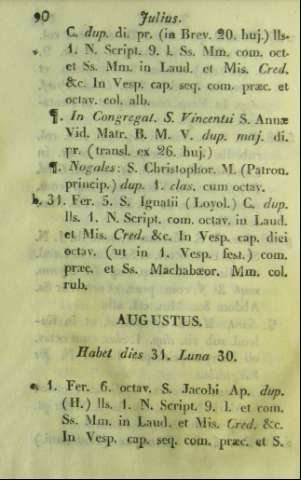 90 Julius.
C. dup. di. pr. (in Brev. 20. huj.) lls.
1. N. Script. 9. l. Ss. Mm. com. oct.
et Ss. Mm. in Laud. et Mis. Cred.
&c. In Vesp. cap. seq. com. præc. et
octav. col. alb.
¶. In Congregat. S. Vincentii S. Annæ
Vid. Matr. B. M. V. dup. maj. di.
pr. (transl. ex 26. huj.)
¶. Nogales: S. Christophor. M. (Patron.
princip.) dup. 1. clas. cum octav.
b. 31. Fer. 5. S. Ignatii (Loyol.) C. dup.
lls. 1. N. Script. com. octav. in Laud.
et Mis. Cred. &c. In Vesp. cap. diei
octav. (ut in 1. Vesp. fest.) com.
præc. et Ss. Machabæor. Mm. col.
rub.
AUGUSTUS.
Habet dies 31. Luna 30.
1. Fer. 6. octav. S. Jacobi Ap. dup.
(H.) lls. 1. N. Script. 9. l. et com.
Ss. Mm. in Laud. et Mis. Cred. &c.
In Vesp. cap. seq. com. præc. et S.